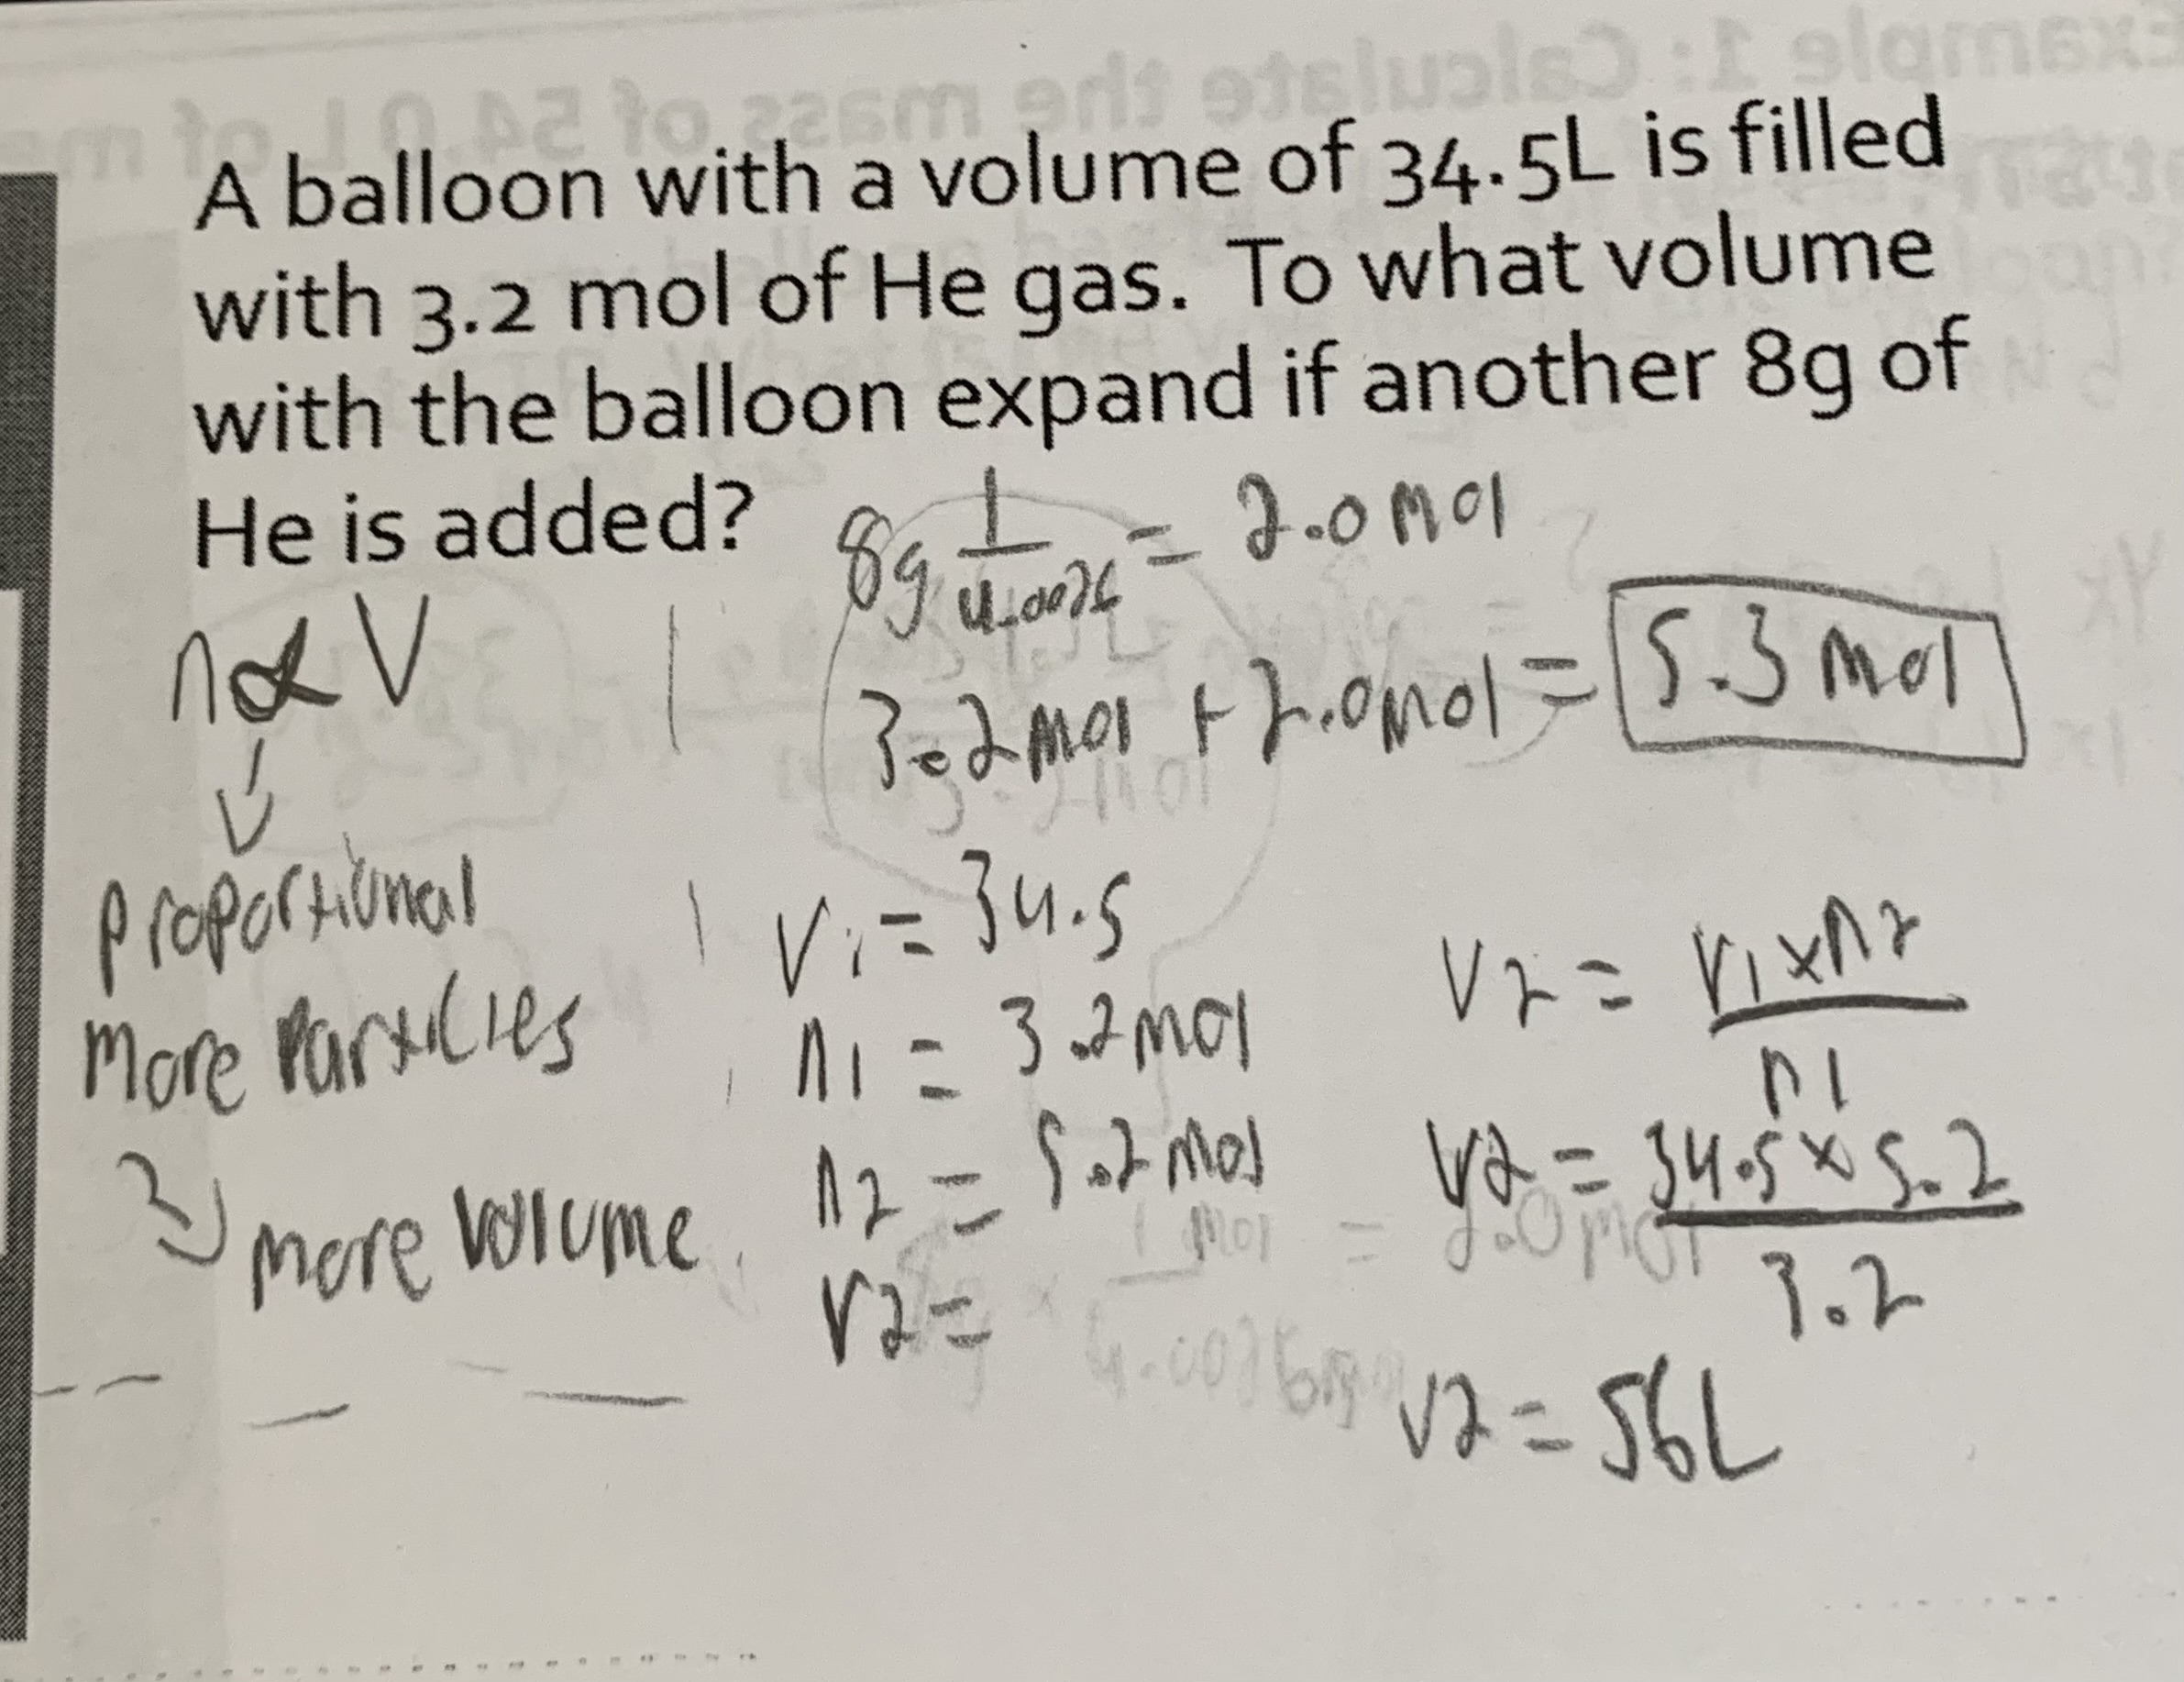 A balloon with a volume of 34.5L is filled
with 3.2 mol of He gas. To what volume
with the balloon expand if another 8g of
He is added?
8g 1/4.0026 = 2.0 mol
3.2 mol + 2.0 mol = 5.3 mol
n ∝ V
↓
proportional
more particles
more volume
V1 = 34.5
n1 = 3.2 mol
n2 = 5.2 mol
V2 =
V2 = V1 x n2 / n1
V2 = 34.5 x 5.2 / 3.2
V2 = 56L